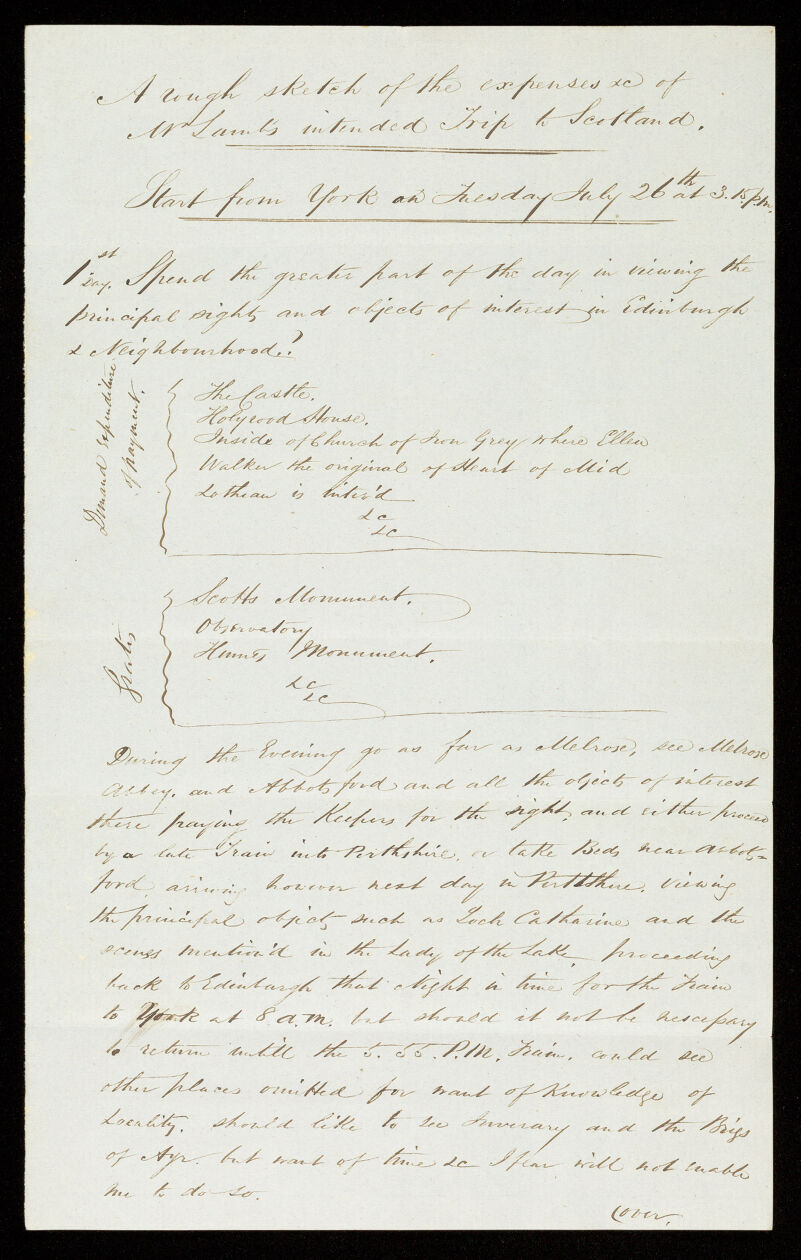 A rough sketch of the expenses &c of
Mr Lamb's intended Trip to Scotland.
Start from York on Tuesday July 26th at 3.15 p.m.
1st Day. Spend the greater part of the day in viewing the
principal sights and objects of interest in Edinburgh
& Neighbourhood.?
Demand Expenditure
of payment.
The Castle.
Holyrood House.
Inside of Church of Iron Grey where Ellen
Walker the original of Heart of Mid
Lothian is inter'd
&c
&c
Gratis
Scotts Monument.
Observatory
Humes Monument.
&c
&c
During the Evening go as far as Melrose, see Melrose
Abbey. and Abbotsford and all the objects of interest
there paying the Keepers for the sight, and either proceed
by a late Train into Perthshire. or take Beds near Abbots=
ford arriving however next day in Perthshire. viewing
the principal objects such as Loch Catharine and the
scenes mention'd in the Lady of the Lake, proceeding
back to Edinburgh that Night in time for the Train
to York at 8 a.m. but should it not be nescessary
to return untill the 5.55 P.M. Train. could see
other places omitted for want of Knowledge of
Locality. should like to see Inverary and the Brigs
of Ayr. but want of time &c I fear will not enable
me to do so.
(over.